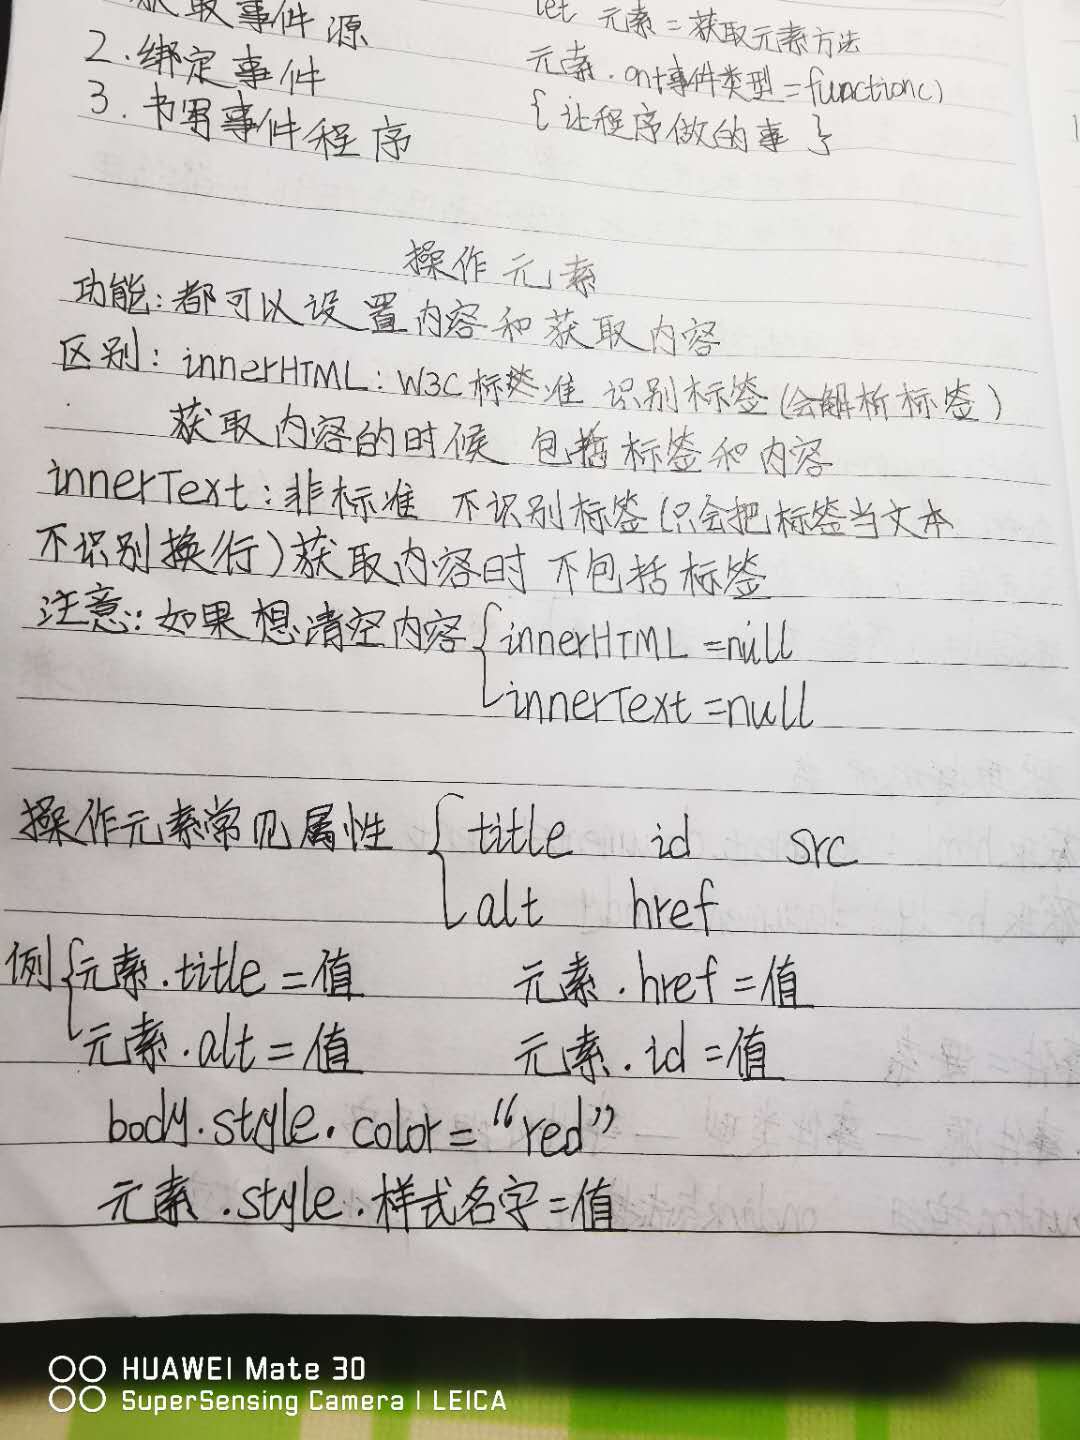 获取事件源
2.绑定事件
3.书写事件程序
let 元素=获取元素方法
元素.on+事件类型=function()
{让程序做的事}
操作元素
功能:都可以设置内容和获取内容
区别:innerHTML:W3C标准 识别标签(会解析标签)
获取内容的时候 包括标签和内容
innerText:非标准 不识别标签(只会把标签当文本
不识别换行)获取内容时 不包括标签
注意::如果想清空内容{innerHTML=null
innerText=null
操作元素常见属性{title id src
alt href
例{元素.title=值 元素.href=值
元素.alt=值 元素.id=值
body.style.color="red"
元素.style.样式名字=值
HUAWEI Mate 30
SuperSensing Camera | LEICA